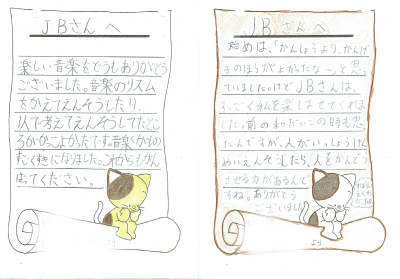 JBさんへ
楽しい音楽をどうもありがとう
ございました。音楽のリズム
をかえてえんそうしたり、
人で考えてえんそうしてたとこ
ろがかっこよかったです。音楽がもの
すごくすきになりました。これからもがん
ばってください。
より
JBさんへ
始めは、「かんしょうより、かんげ
きのほうがよかったな」って思っ
ていましたけどJBさんは、
すっごく私を楽しませてくれま
した。前の和だいこの時も思っ
たんですが、人がいっしょうけ
んめいえんそうしたら、人をかんどう
させる力があるんで
すね。ありがとう
ございました
より